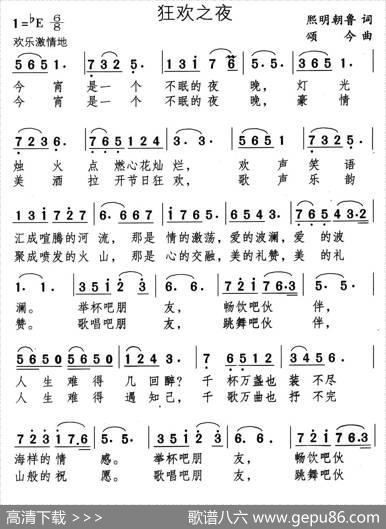 狂欢之夜
1=♭E 6/8
熙明朝鲁 词
颂 今 曲
欢乐激情地
5 6 5 1. 7 3 2 5. 5 6 5 1 2 3. 5 6 5 1.
今 宵 是一 个 不眠的 夜 晚, 灯 光
今 宵 是一 个 不眠的 夜 晚, 豪 情
7 2 3 6. 7 6 5 1 2 4 3. 3 7 2 3 5. 5 6 5 1.
烛 火 点 燃心花灿 烂, 欢 声 笑 语
美 酒 拉 开节日狂 欢, 歌 声 乐 韵
汇成喧腾的河 流, 那是 情的激荡,爱的波澜,爱 的波
聚成喷发的火 山, 那是 心的交融,美的礼赞,美 的礼
1. 1. 3 5 1 2 3 5. 5. 7 2 1 7 6. 3 5. 5.
澜。 举杯吧朋 友, 畅饮吧伙 伴,
赞。 歌唱吧朋 友, 跳舞吧伙 伴,
5 6 5 0 5 0 5 6 5 0 1 2 4 3. 7 6 5 1 2 3 4 5 6.
人 生 难 得 几 回醉? 千 杯万盏也 装 不尽
人 生 难 得 遇 知己, 千 歌万曲也 抒 不完
7 2 3 1 7. 6 5. 5. 3 5 1 2 3 5. 5. 7 2 1 7. 6
海样的情 感。 举杯吧朋 友, 畅饮吧伙
山般的祝 愿。 歌唱吧朋 友, 跳舞吧伙
高清下载 >>>
歌谱八六 www.gepu86.com